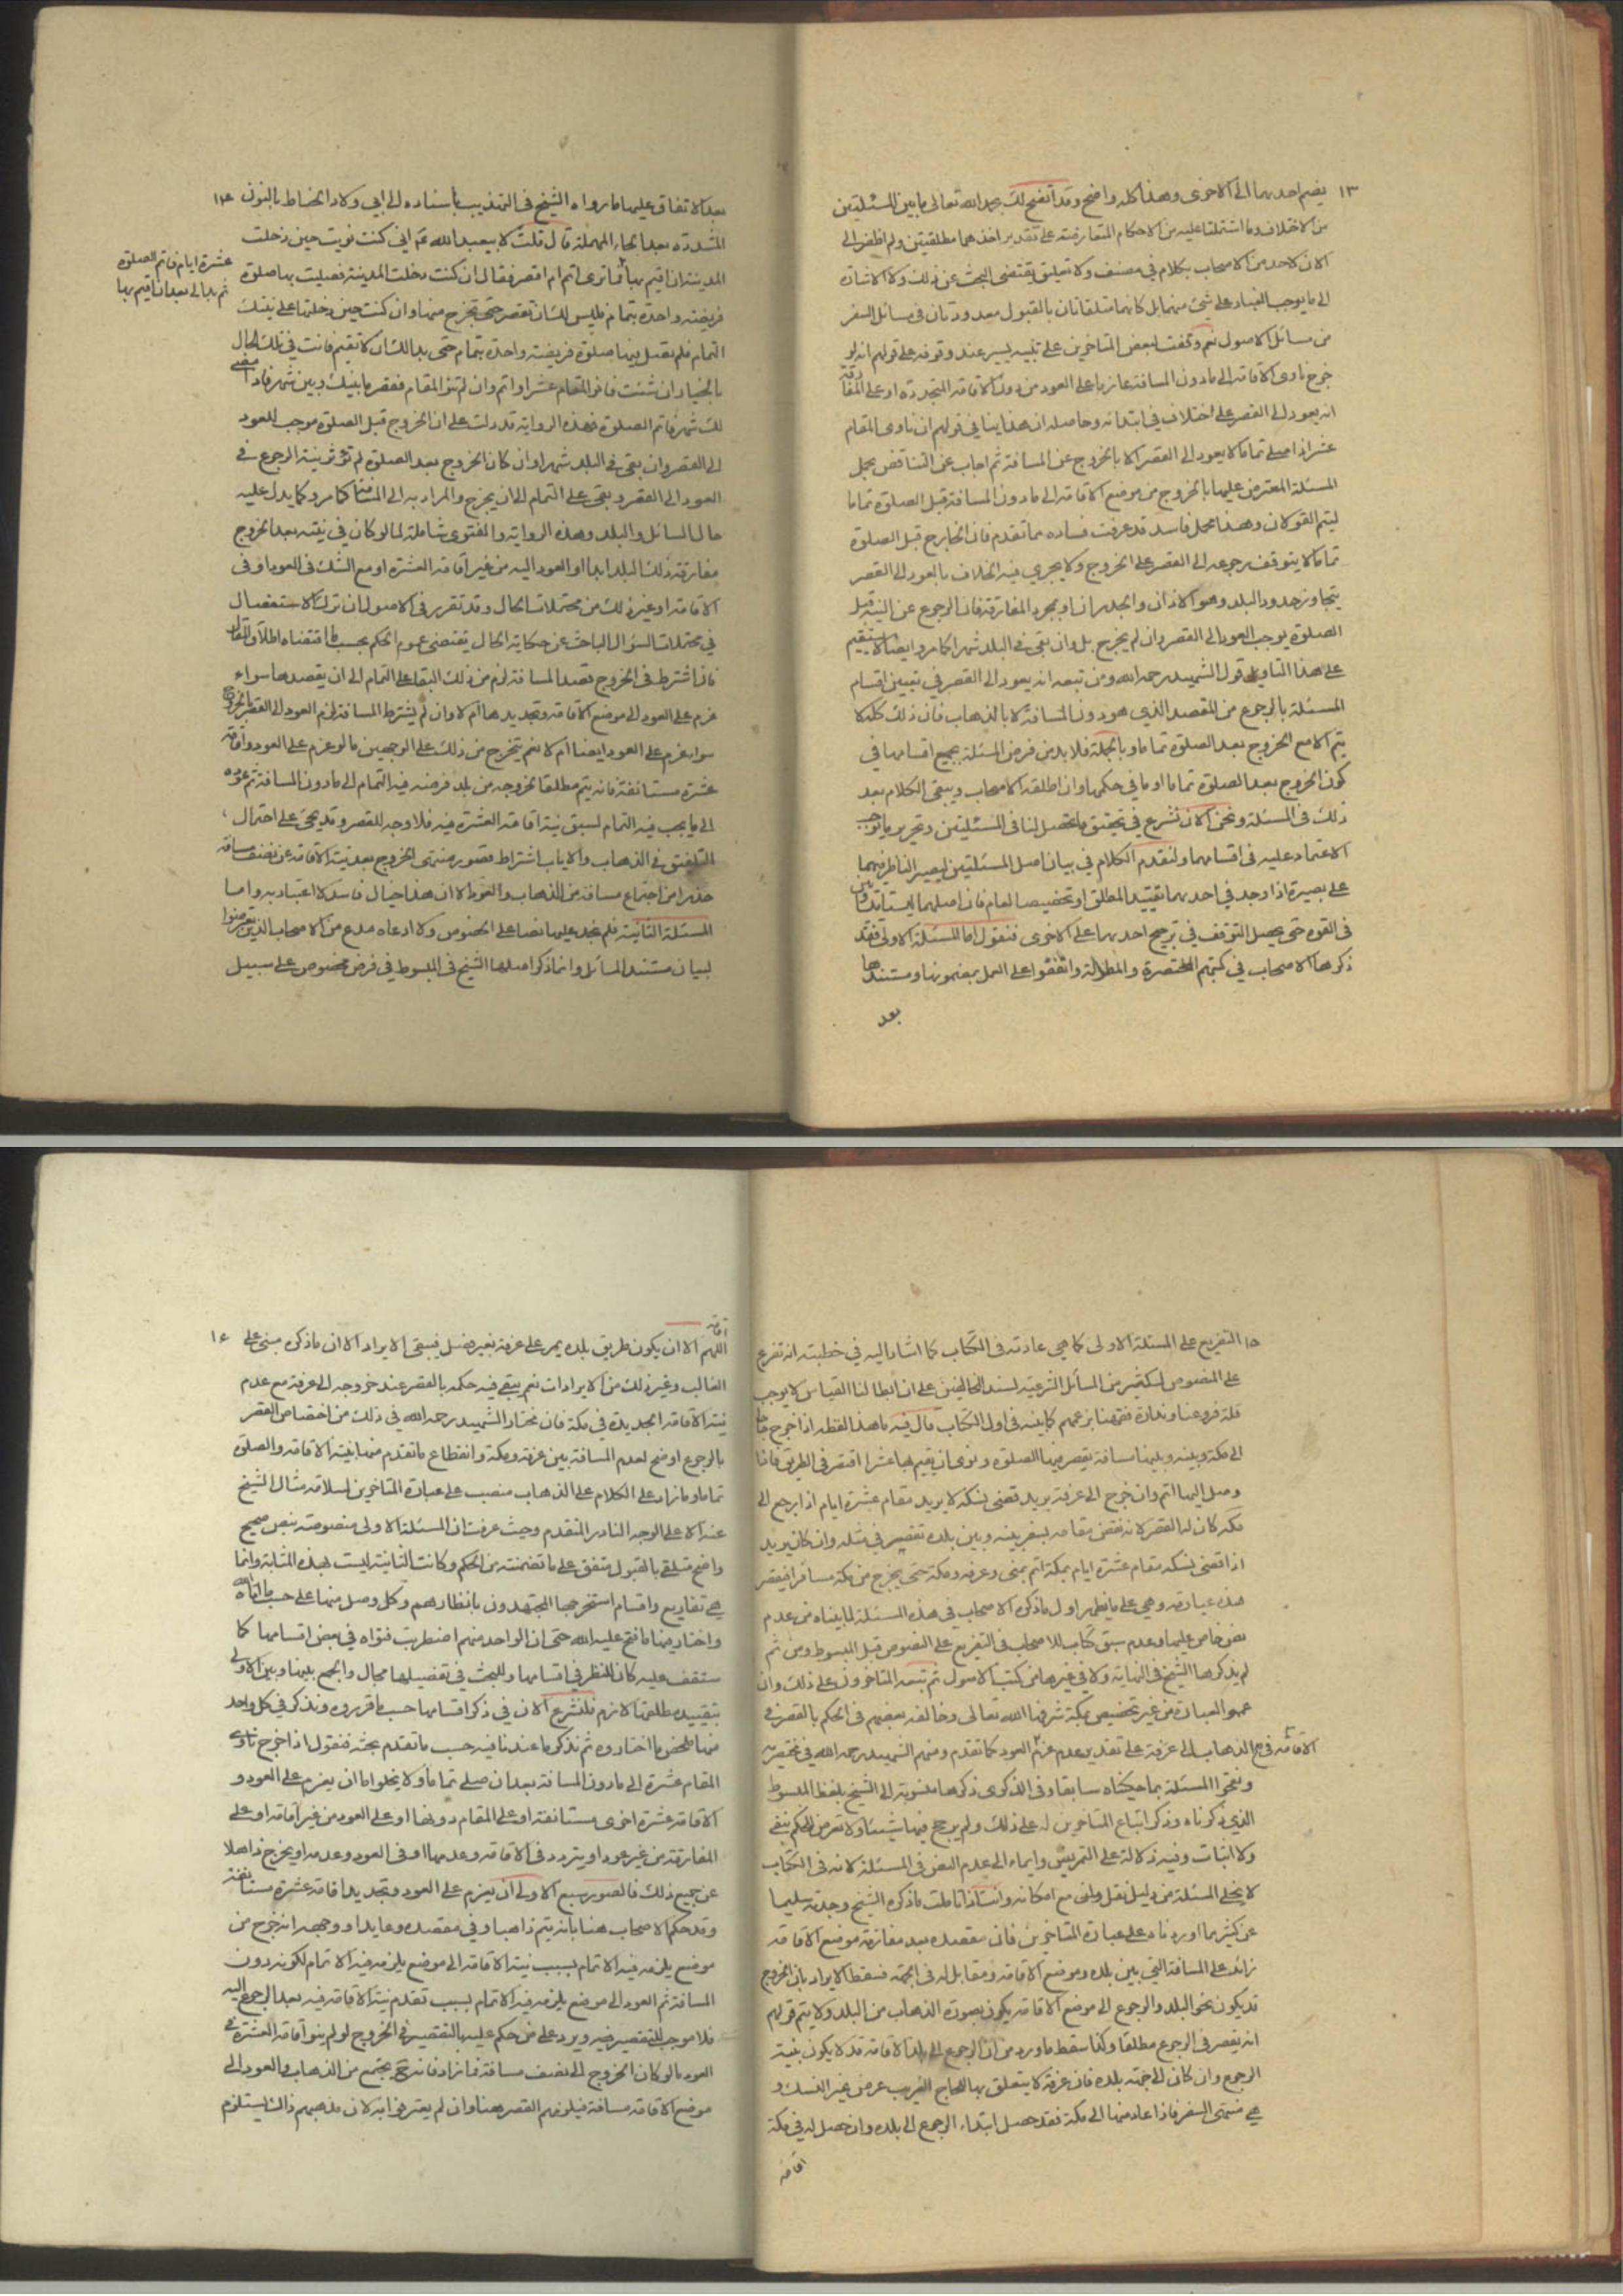 ١٣
يضم احدىهما الى الاخرى وهذا كله واضح وقد اتضح لك بحمد الله تعالى ما بين المسئلتين
من الاختلاف وما اشتملتا عليه من الاحكام المتعارضة على تقدير اخذهما مطلقتين ولم اظفر الى
الان لاحد من الاصحاب بكلام في مصنف ولا تعليق يقتضى البحث عن ذلك ولا الاشارة
الى ما يوجب الفساد على شئ منهما بل كانهما متلقاتان بالقبول معدودتان فى مسائل السفر
من مسائل الاصول نعم وقفت لبعض المتاخرين على تنبيه يسير عند وقوفه على قولهم انه لو
خرج ناوى الاقامة الى ما دون المسافة عازما على العود من دون الاقامة المتجددة او على المفارقة
انه يعود الى القصر على اختلاف في ابتدائه وحاصله ان هذا ينافي قولهم ان ناوى المقام
عشرا اذا صلى تماما لا يعود الى القصر الا بالخروج عن المسافة ثم اجاب عن التناقض بحمل
المسئلة المعترض عليها بالخروج من موضع الاقامة الى ما دون المسافة قبل الصلوة تماما
ليتم القولان وهذا محمل فاسد قد عرفت فساده مما تقدم فان الخارج قبل الصلوة
تماما لا يتوقف رجوعه الى القصر على الخروج ولا يجري فيه الخلاف بالعود الى القصر
بتجاوز حدود البلد وهو الاذان والجدران او بمجرد المفارقة فان الرجوع عن النية قبل
الصلوة يوجب العود الى القصر وان لم يخرج بل وان بقى فى البلد شهرا كما مر وايضا لا يستقيم
على هذا التاويل قول الشهيد رحمه الله ومن تبعه انه يعود الى القصر في تبيين اقسام
المسئلة بالرجوع من المقصد الذي هو دون المسافة لا بالذهاب فان ذلك كله لا
يتم الا مع الخروج بعد الصلوة تماما وبالجملة فلا بد من فرض المسئلة بجميع اقسامها في
كون الخروج بعد الصلوة تماما او ما في حكمها وان اطلقه الاصحاب ويبقى الكلام بعد
ذلك فى المسئلة ونحن الان نشرع في تحقيق ما تحصل لنا فى المسئلتين وتحرير ما توجب
الاعتماد عليه فى اقسامهما ولنقدم الكلام في بيان اصل المسئلتين ليصير الناظر فيهما
على بصيرة اذا وجد في احدىهما تقييد المطلق او تخصيصا لعام فان اصلهما ليستا متساويتين
فى القوة حتى يحصل التوقف في ترجيح احدىهما على الاخرى فنقول اما المسئلة الاولى فقد
ذكرها الاصحاب في كتبهم المختصرة والمطولة واتفقوا على العمل بمضمونها ومستندها
بعد
١٤
بعد الاتفاق عليها ما رواه الشيخ في التهذيب باسناده الى ابي ولاد الحناط بالنون
المشددة بعد الحاء المهملة قال قلت لابيعبد الله ع انى كنت نويت حين دخلت
المدينة ان اقيم بها فما ترى اتم ام اقصر فقال ان كنت دخلت المدينة فصليت بها صلوة
عشرة ايام فاتم الصلوة
ثم بدا لى بعد ان اقيم بها
فريضة واحدة بتمام فليس لك ان تقصر حتى تخرج منها وان كنت حين دخلتها على نيتك
التمام فلم تصل فيها صلوة فريضة واحدة بتمام حتى بدا لك ان لا تقيم فانت في تلك الحال
بالخيار ان شئت فانو المقام عشرا واتم وان لم تنو المقام فقصر ما بينك وبين شهر فاذا مضى
لك شهر فاتم الصلوة فهذه الرواية قد دلت على ان الخروج قبل الصلوة موجب للعود
الى القصر وان بقى فى البلد شهرا وان كان الخروج بعد الصلوة لم تؤثر نية الرجوع فى
العود الى القصر ويبقى على التمام الى ان يخرج والمراد به الى المسافة كما مر وكما يدل عليه
حال السائل والبلد وهذه الرواية والفتوى شاملة لما لو كان في نيته بعد الخروج
مفارقة ذلك البلد ابدا او العود اليه من غير اقامة العشرة او مع الشك فى العود او فى
الاقامة او غير ذلك من محتملات الحال وقد تقرر فى الاصول ان ترك الاستفصال
في محتملات السؤال الباحث عن حكاية الحال يقتضى عموم الحكم بحسب ما اقتضاه اطلاق المقال
فاذا اشترط فى الخروج قصد المسافة لزم من ذلك البقاء على التمام الى ان يقصدها سواء
عزم على العود الى موضع الاقامة وتجديدها ام لا وان لم يشترط المسافة لزم العود الى القصر بالخروج
سواء عزم على العود ايضا ام لا نعم يتخرج من ذلك على الوجهين ما لو عزم على العود واقامة
عشرة مستانفة فانه يتم مطلقا لخروجه من بلد فرضه فيه التمام الى ما دون المسافة ثم عوده
الى ما يجب فيه التمام لسبق نية اقامة العشرة فيه فلا وجه للقصر وقد يجئ على احتمال
التلفيق فى الذهاب والاياب اشتراط قصور منتهى الخروج بعد نية الاقامة عن نصف مسافة
حذرا من اجتماع مسافة من الذهاب والعود الا ان هذا خيال فاسد لا اعتبار به واما
المسئلة الثانية فلم نجد عليها نصا على الخصوص ولا ادعاه مدع من الاصحاب الذين تعرضوا
لبيان مستند المسائل وانما ذكر اصلها الشيخ فى المبسوط في فرض مخصوص على سبيل
١٥
التفريع على المسئلة الاولى كما هى عادته فى الكتاب كما اشار اليه في خطبته انه تفرع
على المنصوص لتكثير من المسائل الفرعية لسند المخالفين على ان ابطالنا القياس لا يوجب
قلة فروعنا وندارة فقهنا بزعمهم كما بينه فى اول الكتاب قال فيه ما هذا لفظه اذا خرج حاجا
الى مكة وبينه وبينها مسافة يقصر فيها الصلوة ونوى ان يقيم بها عشرا اقتصر فى الطريق فاذا
وصل اليها اتم وان خرج الى عرفة يريد قضى نسكه لا يريد مقام عشرة ايام اذا رجع الى
مكة كان له القصر لانه نقض مقامه بسفر بينه وبين بلده تقصير في مثله وان كان يريد
اذا قضى نسكه مقام عشرة ايام بمكة اتم بمنى وعرفة ومكة حتى يخرج من مكة مسافرا فيقصر
هذه عبارته وهي على ما يظهر اول ما ذكره الاصحاب في هذه المسئلة لما بيناه من عدم
نص خاص عليها وعدم سبق كتاب للاصحاب فى التفريع على النصوص قبل المبسوط ومن ثم
لم يذكرها الشيخ فى النهاية ولا في غيرها من كتب الاصول ثم تبعه المتاخرون على ذلك وان
عمموا العبارة من غير تخصيص بمكة شرفها الله تعالى وخالفه بعضهم فى الحكم بالقصر فى
الذهاب الى عرفة على تقدير عدم عزم العود كما تقدم ومنهم الشهيد رحمه الله في مختصريه
الاقامة فرع
وفتحوا المسئلة بما حكيناه سابقا وفى الذكرى ذكرها منسوبة الى الشيخ بلفظ المبسوط
الذي ذكرناه وذكر اتباع المتاخرين له على ذلك ولم يرجح فيها شيئا ولا تعرض للحكم بنفى
ولا اثبات وفيه دلالة على التمريض وايماء الى عدم النص فى المسئلة لانه فى الكتاب
لا يخلى المسئلة من دليل نقلى ولمى مع امكانه وانت اذا تاملت ما ذكره الشيخ وجدته سليما
عن كثير مما اوردناه على عبارة المتاخرين فان مقصده بعد مفارقة موضع الاقامة
زائد على المسافة التي بين بلده وموضع الاقامة ومقابل له فى الجهة فسقط الايراد بان الخروج
قد يكون نحو البلد والرجوع الى موضع الاقامة يكون بصورة الذهاب من البلد ولا يتم قولهم
انه يقصر فى الرجوع مطلقا وكذا سقط ما ورد من ان الرجوع الى بلد الاقامة قد لا يكون بنية
الرجوع وان كان الى جهة بلده فان عرفة لا يتعلق بها للحاج الغريب غرض غير النسك و
هى منتهى السفر فاذا عاد منها الى مكة فقد حصل ابتداء الرجوع الى بلده وان حصل له في مكة
اقامة
١٦
اقامة
اللهم الا ان يكون طريق بلده يمر على عرفة بغير فصل فيبقى الايراد الا ان ما ذكره مبنى على
الغالب وغير ذلك من الايرادات نعم يبقى فيه حكمه بالقصر عند خروجه الى عرفة مع عدم
نية الاقامة الجديدة في مكة فان مختار الشهيد رحمه الله في ذلك من اختصاص القصر
بالرجوع اوضح لعدم المسافة بين عرفة ومكة وانقطاع ما تقدم منها بنية الاقامة والصلوة
تماما وما زاد على الكلام على الذهاب منصب على عبارة المتاخرين لسلامة مثال الشيخ
عنه الا على الوجه النادر المتقدم وحيث عرفت ان المسئلة الاولى منصوصة بنص صحيح
واضح متلقى بالقبول متفق على ما تضمنته من الحكم وكانت الثانية ليست بهذه المثابة وانما
هى تفاريع واقسام استخرجها المجتهدون بانظارهم وكل وصل منها على حسب ما اتاه
واختار منها ما فتح عليه الله حتى ان الواحد منهم اضطربت فتواه في بعض اقسامها كما
ستقف عليه كان للنظر في اقسامها وللبحث فى تفصيلها مجال والجمع بينها وبين الاولى
بتقييد مطلقها لازم فلنشرع الان في ذكر اقسامها حسب ما قرروه ونذكر في كل واحد
منها ملخص ما اختاروه ثم نذكر ما عندنا فيه حسب ما تقدم بحثه فنقول اذا خرج ناوى
المقام عشرة الى ما دون المسافة بعد ان صلى تماما ولا يخلوا اما ان يعزم على العود و
الاقامة عشرة اخرى مستانفة او على المقام دونها او على العود من غير اقامة او على
المفارقة من غير عود او يتردد فى الاقامة وعدمها او فى العود وعدمه او يخرج ذاهلا
عن جميع ذلك فالصور سبع الاولى ان يعزم على العود وتجديد اقامة عشرة مستانفة
وقد حكم الاصحاب هنا بانه يتم ذاهبا وفي مقصده وعايدا ووجهه انه خرج من
موضع يلزمه فيه الاتمام بسبب نية الاقامة الى موضع يلزمه فيه الاتمام لكونه دون
المسافة ثم العود الى موضع يلزمه فيه الاتمام بسبب تقدم نية الاقامة فيه بعد الرجوع اليه
فلا موجب للتقصير فيه ويرد على من حكم عليها بالتقصير فى الخروج لو لم ينو اقامة العشرة فى
العود ما لو كان الخروج الى نصف مسافة فما زاد فانه ح يجتمع من الذهاب والعود الى
موضع الاقامة مسافة فيلزمهم القصر هنا وان لم يعترفوا به لان مذهبهم ذلك يستلزم